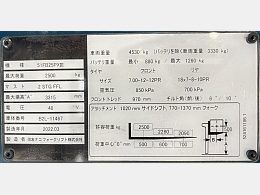 型式 51FB25PXIII
最大荷重 2500 kg
マスト 2STG.FFL
最大揚高 "A" 3315 mm
電圧 48 V
車両番号 BZL-11457
製造年月 2022.03
車両重量 4530 kg (バッテリを除く車両重量 3330 kg)
バッテリ重量 最小 880 kg / 最大 1260 kg
タイヤ フロント リヤ
7.00-12-12PR 18x7-8-10PR
空気圧 850 kPa 700 kPa
フロントトレッド 970 mm チルト角(前/後) 6° / 10°
アタッチメント 1020 mm サイドシフト 770-1370 mm フォーク
許容荷重 kg
2500 2280 2090
荷重中心"B" mm 500 600 700